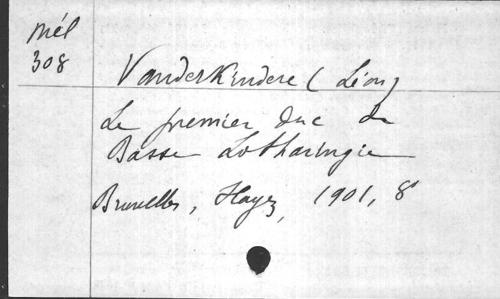 Mél
308
Vanderkindere (Léon)
Le premier duc de
Basse Lotharingie
Bruxelles, Hayez, 1901, 8°